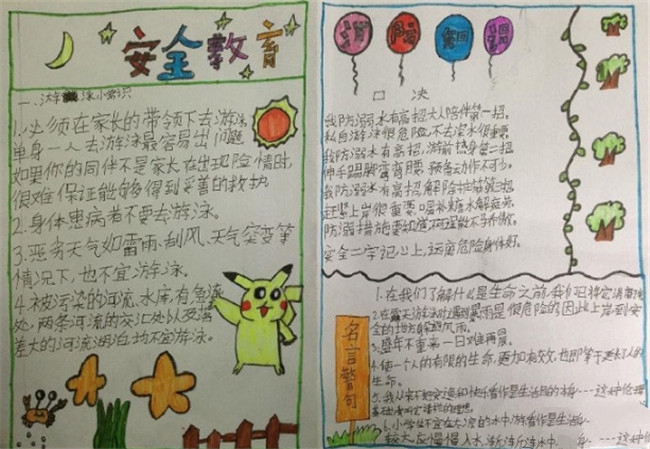 安全教育
一、游泳小常识
1.必须在家长的带领下去游泳,
单身一人去游泳最容易出问题
如果你的同伴不是家长在出现险情时,
很难保证能够得到妥善的救护.
2.身体患病者不要去游泳。
3.恶劣天气如雷雨.刮风、天气突变等
情况下,也不宜游泳。
4.被污染的河流.水库有急流
处,两条河流的交汇处以及落
差大的河流湖泊也不宜游泳。
消防知识
口决
我防溺水有高招大人陪伴第一招.
私自游泳很危险不去深水很重要.
我防溺水有高招.游前热身第二招
伸手踢脚弯背腰.预备动作不可少.
我防溺水有高招解险护航第三招
赶紧上岸很重要.喝补糖水解疲劳.
防溺措施要知道
安全二字记心上,远离危险身体好。
名言警句
1.在我们了解什么是生命之前,我们已将它消磨
2.在露天游泳时遇到暴雨是很危险的因此上岸到安
全的地方躲避风雨。
3.盛年不重来一日难再晨。
4.使一个人的有限的生命.更加有效.也即等于延长了人的
生命。
5.我从来不把安逸和快乐看作是生活目的本身----这种伦理
基础
6.小学生不宜在太凉的水中游
较大.应慢慢入水.渐渐